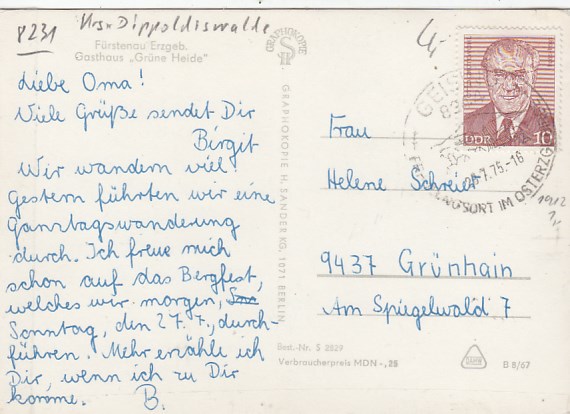 8231 Krs. Dippoldiswalde
Fürstenau Erzgeb.
Gasthaus „Grüne Heide"
Liebe Oma!
Viele Grüße sendet Dir
Birgit
Wir wandern viel.
Gestern führten wir eine
Ganztagswanderung
durch. Ich freue mich
schon auf das Bergfest,
welches wir morgen,
Sonntag, den 27. 7., durch-
führen. Mehr erzähle ich
Dir, wenn ich zu Dir
komme. B.
GRAPHOKOPIE
GRAPHOKOPIE H. SANDER KG, 1071 BERLIN
Best.-Nr. S 2529
Verbraucherpreis MDN -,25
DDR 10
GEIS
.7.75.-16
ORT IM OSTERZG
Frau
Helene Schreier
9437 Grünhain
Am Spiegelwald 7
1912
B 8/67